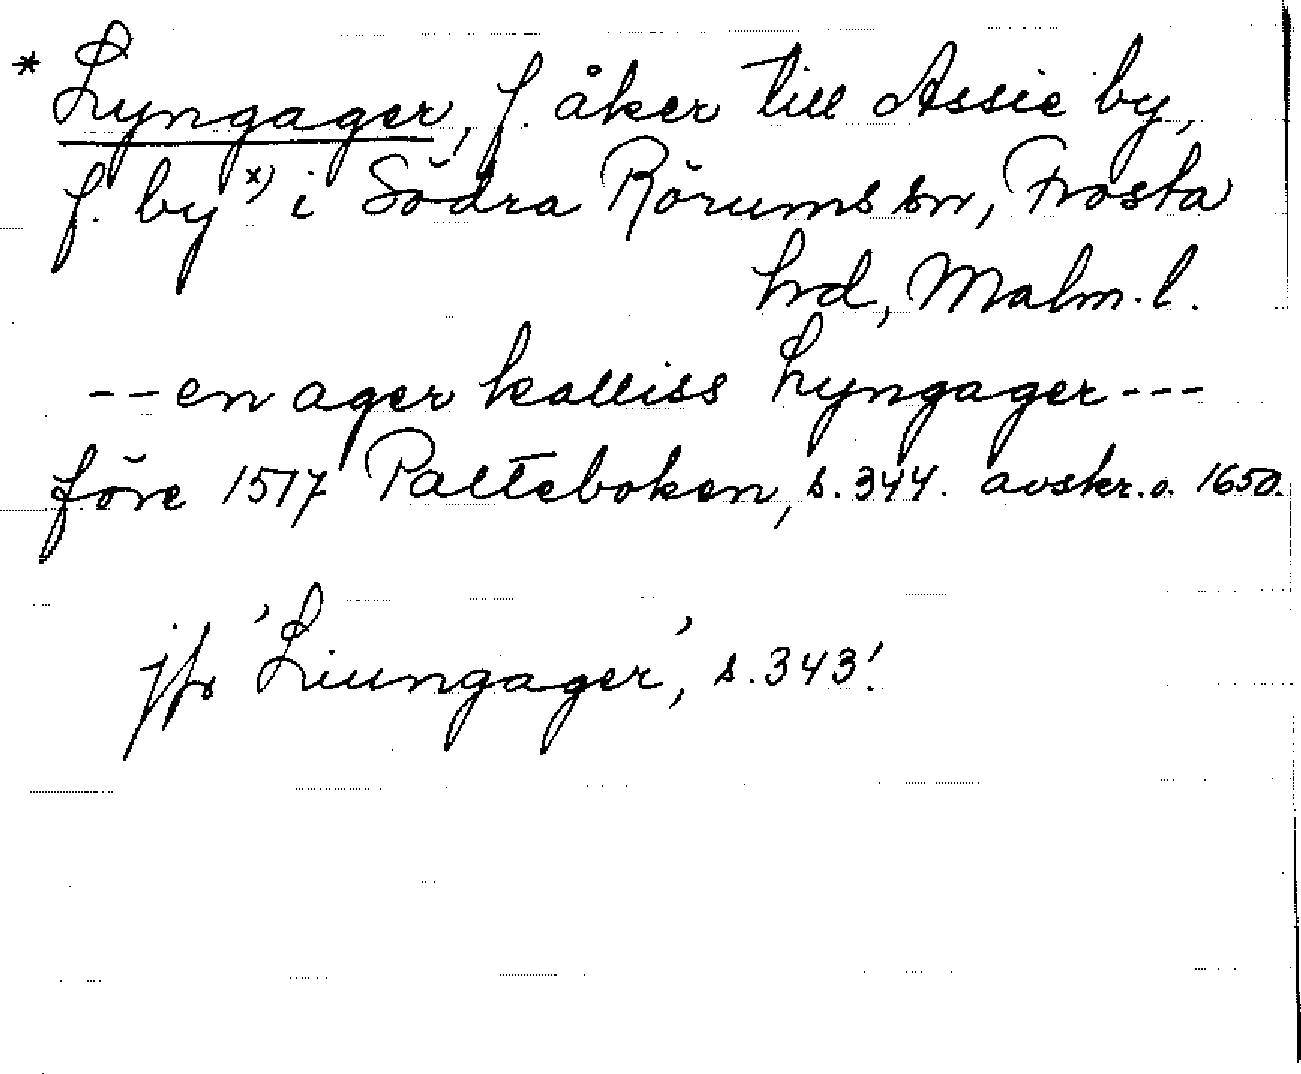 * Lyngager, f. åker till Assie by,
f. by *) i Södra Rörums sn, Frosta
hrd, Malm. l.
-- en ager kalliss Lyngager ---
före 1517 Palteboken, s. 344. avskr. o. 1650.
jfr 'Liungager', s. 343!